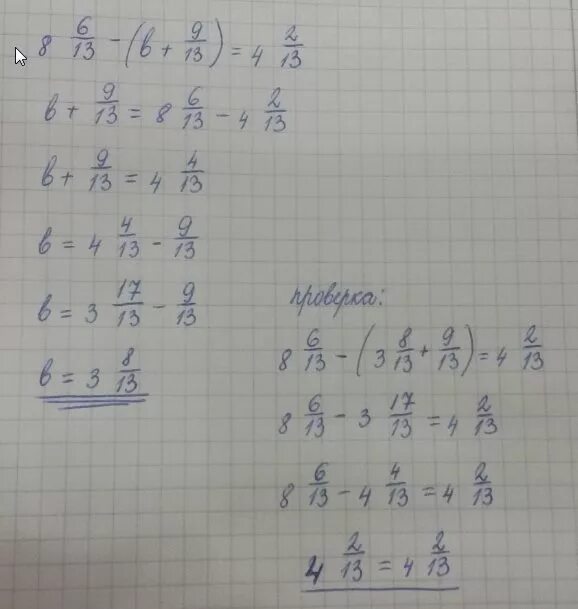 8 6/13 - (в + 9/13) = 4 2/13
в + 9/13 = 8 6/13 - 4 2/13
в + 9/13 = 4 4/13
в = 4 4/13 - 9/13
в = 3 17/13 - 9/13
в = 3 8/13
проверка:
8 6/13 - (3 8/13 + 9/13) = 4 2/13
8 6/13 - 3 17/13 = 4 2/13
8 6/13 - 4 4/13 = 4 2/13
4 2/13 = 4 2/13